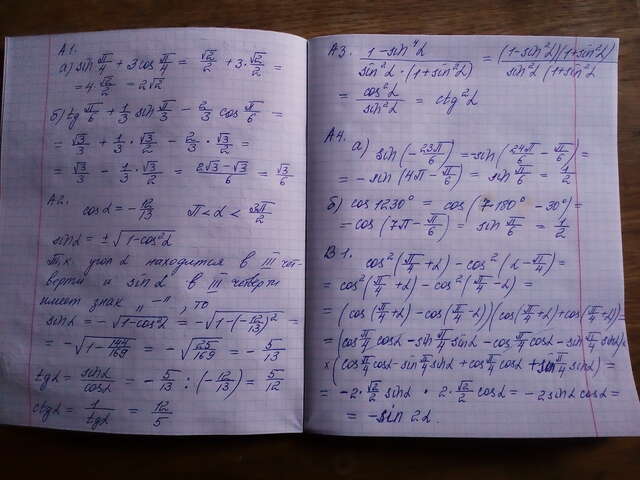 А1.
а) sin π/4 + 3cos π/4 = √2/2 + 3·√2/2 =
= 4√2/2 = 2√2
б) tg π/6 + 1/3 sin π/3 − 2/3 cos π/6 =
= √3/3 + 1/3·√3/2 − 2/3·√3/2 =
= √3/3 − 1/3·√3/2 = (2√3−√3)/6 = √3/6
А2.
cosα = −12/13 π<α<3π/2
sinα = ±√(1−cos²α)
т.к угол α находится в III чет-
верти и sinα в III четверти
имеет знак „−", то
sinα = −√(1−cos²α) = −√(1−(−12/13)²) =
= −√(1−144/169) = −√(25/169) = −5/13
tgα = sinα/cosα = −5/13 : (−12/13) = 5/12
ctgα = 1/tgα = 12/5
А3. (1−sin⁴α)/(sin²α·(1+sin²α)) = (1−sin²α)(1+sin²α)/(sin²α(1+sin²α)
= cos²α/sin²α = ctg²α
А4.
а) sin(−23π/6) = −sin(24π/6 − π/6) =
= −sin(4π−π/6) = sin π/6 = 1/2
б) cos 1230° = cos(7·180° − 30°) =
= cos(7π−π/6) = sin π/6 = 1/2
В1. cos²(π/4+α) − cos²(α−π/4) =
= cos²(π/4+α) − cos²(π/4−α) =
= (cos(π/4+α)−cos(π/4−α))(cos(π/4+α)+cos(π/4+α)) =
= (cos π/4 cosα − sin π/4 sinα − cos π/4 cosα − sin π/4 sinα)×
×(cos π/4 cosα − sin π/4 sinα + cos π/4 cosα + sin π/4 sinα) =
= −2·√2/2 sinα · 2·√2/2 cosα = −2sinα cosα =
= −sin 2α.